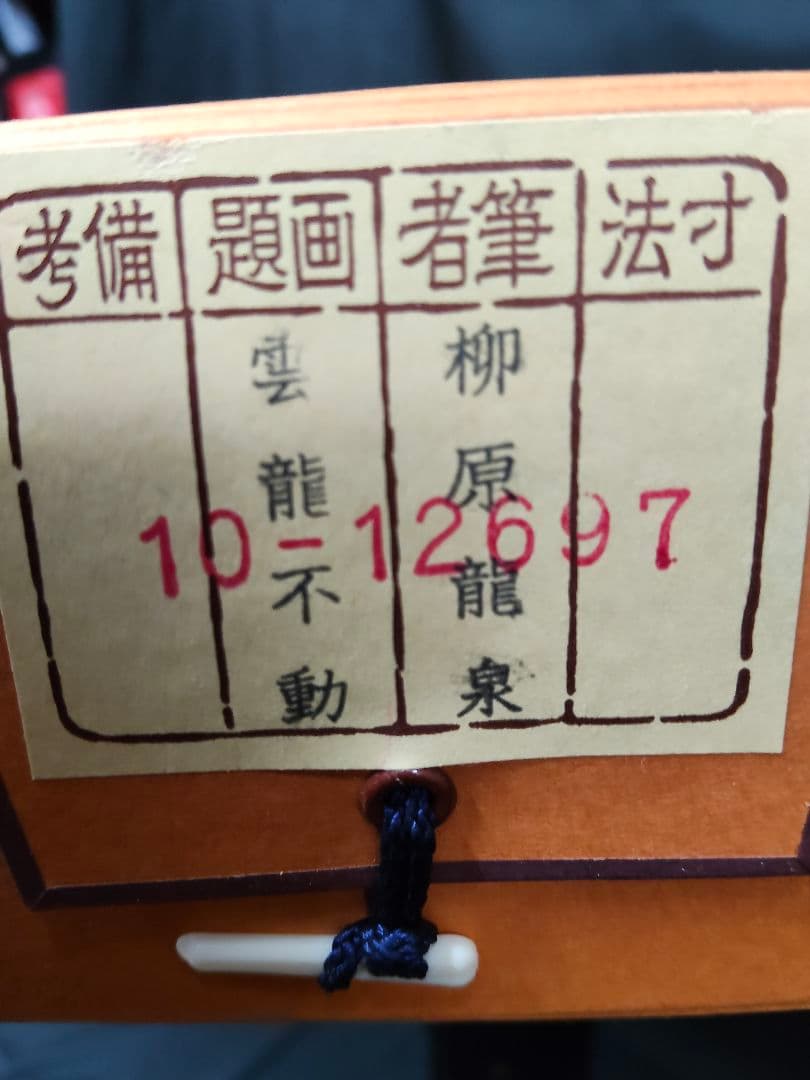 寸法
筆者
柳原龍泉
画題
雲龍不動
備考
10-12697